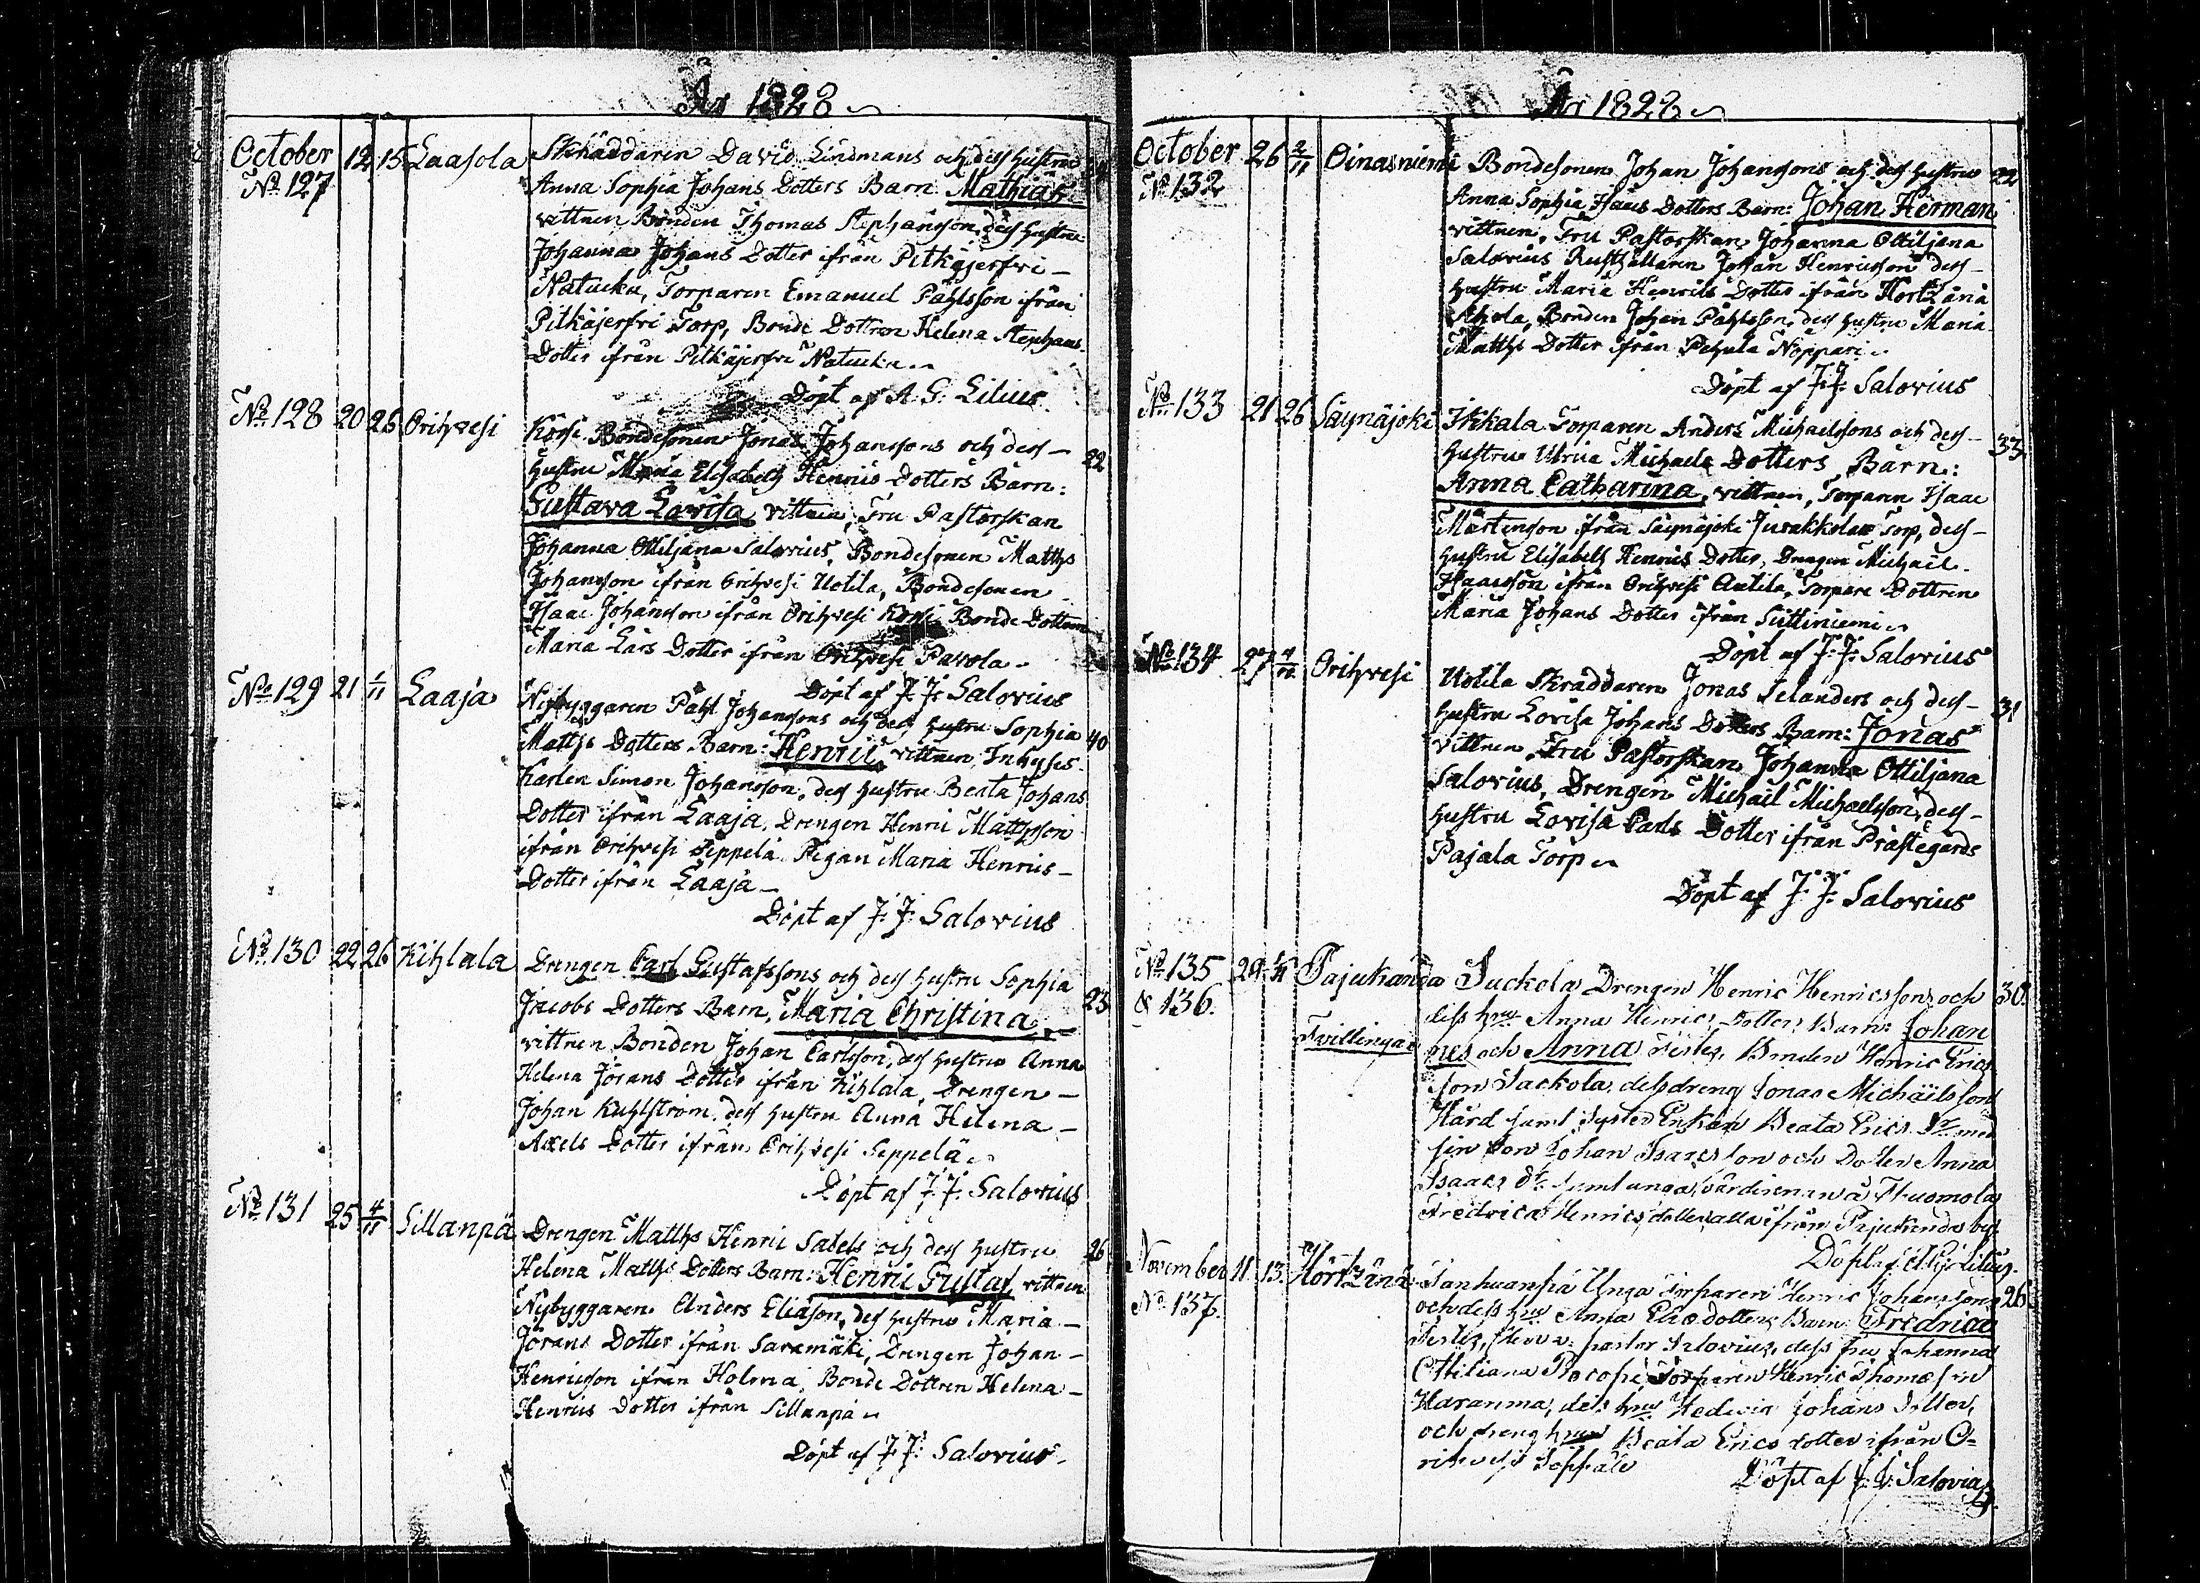 År 1828
October 12 15 Laasola Skräddaren David Lindmans och dess hustru
No 127 Anna Sophia Johans Dotters Barn Mathias
vittnen Bonden Thomas Stephansson, dess hustru
Johanna Johans Dotter ifrån Pitkäjerfvi
Natucka, Torparen Emanuel Påhlsson ifrån
Pitkäjerfvi Torp, Bonde Dottren Helena Stephans
Dotter ifrån Pitkäjerfvi Natucka
Döpt af A. G. Lilius
No 128 20 26 Orihvesi Körsi Bondesonen Jonas Johanssons och dess 22
hustru Maria Elisabeth Henrics Dotters Barn:
Gustava Lovisa vittnen, Fru Pastorskan
Johanna Ottiljana Salovius, Bondesonen Matths
Johansson ifrån Orihvesi Uotila, Bondesonen
Isaac Johansson ifrån Orihvesi Körsi Bonde Dottren
Maria Lars Dotter ifrån Orihvesi Pavola
Döpt af J. J. Salovius
No 129 21 1/11 Laaja Nybyggaren Påhl Johanssons och dess hustru Sophia 40
Matths Dotters Barn: Henric vittnen, Inhyses
Karlen Simon Johansson, dess hustru Beata Johans
Dotter ifrån Laaja, Drengen Henric Matthsson
ifrån Orihvesi Seppelä Pigan Maria Henrics
Dotter ifrån Laaja
Döpt af J. J. Salovius
No 130 22 26 Kihlala Drengen Carl Gustafssons och dess hustru Sophia 23
Jacobs Dotters Barn, Maria Christina
vittnen Bonden Johan Carlsson, dess hustru Anna
Helena Jörans Dotter ifrån Kihlala, Drengen
Johan Kuhlström, dess hustru Anna Helena
Axels Dotter ifrån Orihvesi Seppelä
Döpt af J. J. Salovius
No 131 25 4/11 Sillanpä Drengen Matths Henric Sabels och dess hustru 26
Helena Matths Dotters Barn: Henric Gustaf, vittnen
Nybyggaren Anders Eliasson, dess hustru Maria
Jörans Dotter ifrån Saramäki, Drengen Johan
Henricsson ifrån Holma, Bonde Dottren Helena
Henrics Dotter ifrån Sillanpä
Döpt af J. J. Salovius
År 1828
October 26 2/11 Oinasniemi Bondesonen Johan Johanssons och dess hustru 22
No 132 Anna Sophia Isaacs Dotters Barn: Johan Herman
vittnen, Fru Pastorskan Johanna Ottiljana
Salovius Rusthållaren Johan Henricsson dess
hustru Maria Henrics Dotter ifrån Hörtzänä
Ahola, Bonden Johan Påhlsson, dess hustru Maria
Matths Dotter ifrån Pehula Noppari
Döpt af J. J. Salovius
No 133 21 26 Säynäjoki Ikkala Torparen Anders Michaelssons och dess 33
hustru Ulrica Michaels Dotters Barn:
Anna Catharina, vittnen, Torparen Isaac
Mårtensson ifrån Säynäjoki Jurakkola Torp, dess
hustru Elisabeth Henrics Dotter, Drengen Michael
Isaacsson ifrån Orihvesi Antila, Torpare Dottren
Maria Johans Dotter ifrån Sittiniemi
Döpt af J. J. Salovius
No 134 27 Orihvesi Uotila Skräddaren Jonas Selanders och dess 31
hustru Lovisa Johans Dotters Barn: Jonas
vittnen Fru Pastorskan Johanna Ottiljana
Salovius, Drengen Michail Michaelsson, dess
hustru Lovisa Carls Dotter ifrån Prästegårds
Pajala Torp
Döpt af J. J. Salovius
No 135 29 Pajukanda Suckola Drengen Henric Henricssons och 30
& 136. dess hru Anna Henrics dotters Barn: Johan
Tvillingar nes och Anna Testes, Bonden Henric Erics
son Suckola, dess dreng Jonas Michäilsson
Hård samt Syster Enkan Beata Erics Dr med
sin son Johan Isaacsson och Dotter Anna
Isaacs dr samt unga värdinnan å Tuomola
Fredrica Henrics dotter alla ifrån Pajukanda by
Döpt af A. G. Lilius
November 11. 13. Hörtzänä Unga Torparen Henric Johanssons 26
No 137. och dess hru Anna Erics dotters Barn Fredrica
Testes, Herr v. pastor Salovius, dess fru Johanna
Ottiliana Procopé, Torparen Henric Thomasson
Haranma, dess hru Hedvig Johans dotter,
och dreng hrun Beata Erics dotter ifrån O-
rihvesi Seppälä
Döpt af J. J. Salovius